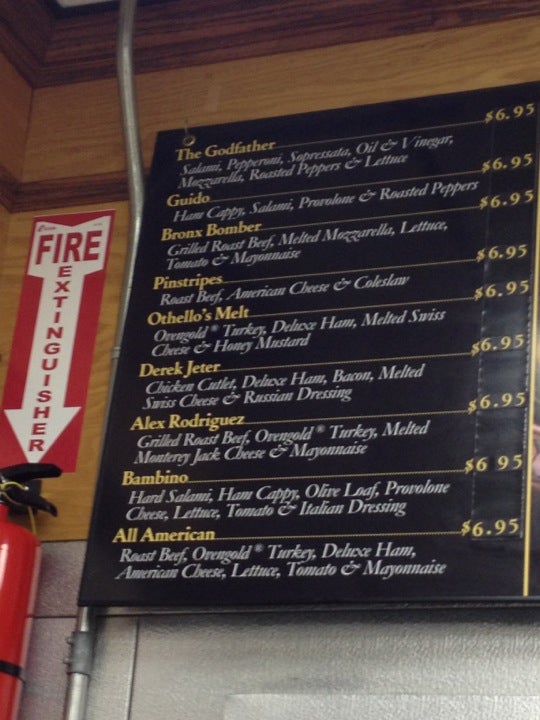 The Godfather $6.95
Salami, Pepperoni, Sopressata, Oil & Vinegar,
Mozzarella, Roasted Peppers & Lettuce
Guido $6.95
Ham Cappy, Salami, Provolone & Roasted Peppers
Bronx Bomber $6.95
Grilled Roast Beef, Melted Mozzarella, Lettuce,
Tomato & Mayonnaise
Pinstripes $6.95
Roast Beef, American Cheese & Coleslaw
Othello's Melt $6.95
Ovengold® Turkey, Deluxe Ham, Melted Swiss
Cheese & Honey Mustard
Derek Jeter $6.95
Chicken Cutlet, Deluxe Ham, Bacon, Melted
Swiss Cheese & Russian Dressing
Alex Rodriguez $6.95
Grilled Roast Beef, Ovengold® Turkey, Melted
Monterey Jack Cheese & Mayonnaise
Bambino $6 95
Hard Salami, Ham Cappy, Olive Loaf, Provolone
Cheese, Lettuce, Tomato & Italian Dressing
All American $6.95
Roast Beef, Ovengold® Turkey, Deluxe Ham,
American Cheese, Lettuce, Tomato & Mayonnaise
FIRE
EXTINGUISHER